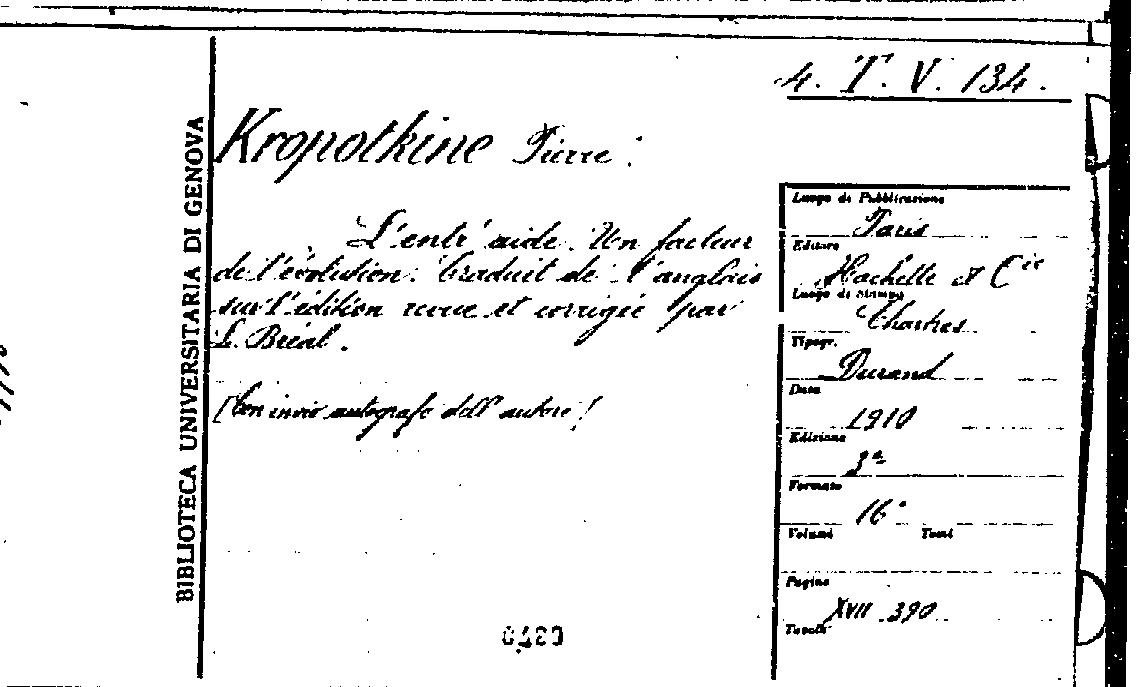 4. T. V. 134.
BIBLIOTECA UNIVERSITARIA DI GENOVA
Kropotkine Pierre.
L'entr'aide. Un facteur
de l'évolution. Traduit de l'anglais
sur l'édition revue et corrigée par
L. Bréal.
[Con invio autografo dell'autore]
Luogo di Pubblicazione
Paris
Editore
Hachette et Cie
Luogo di Stampa
Chartres
Tipogr.
Durand
Data
1910
Edizione
3a
Formato
16°
Volumi Tomi
Pagine
XVII 390
Tavole